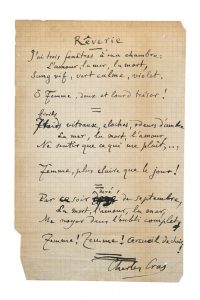 Rêverie
J'ai trois fenêtres à ma chambre:
L'amour, la mer, la mort,
Sang vif, vert calme, violet.
O femme, doux et lourd trésor!
Froids vitraux, cloches, odeurs d'ambre
La mer, la mort, l'amour,
Ne sentir que ce qui me plaît...
Femme, plus claire que le jour!
Par ce soir doré de septembre,
La mort, l'amour, la mer,
Me noyer dans l'oubli complet
Femme! Femme! cercueil de chair!
Charles Cros